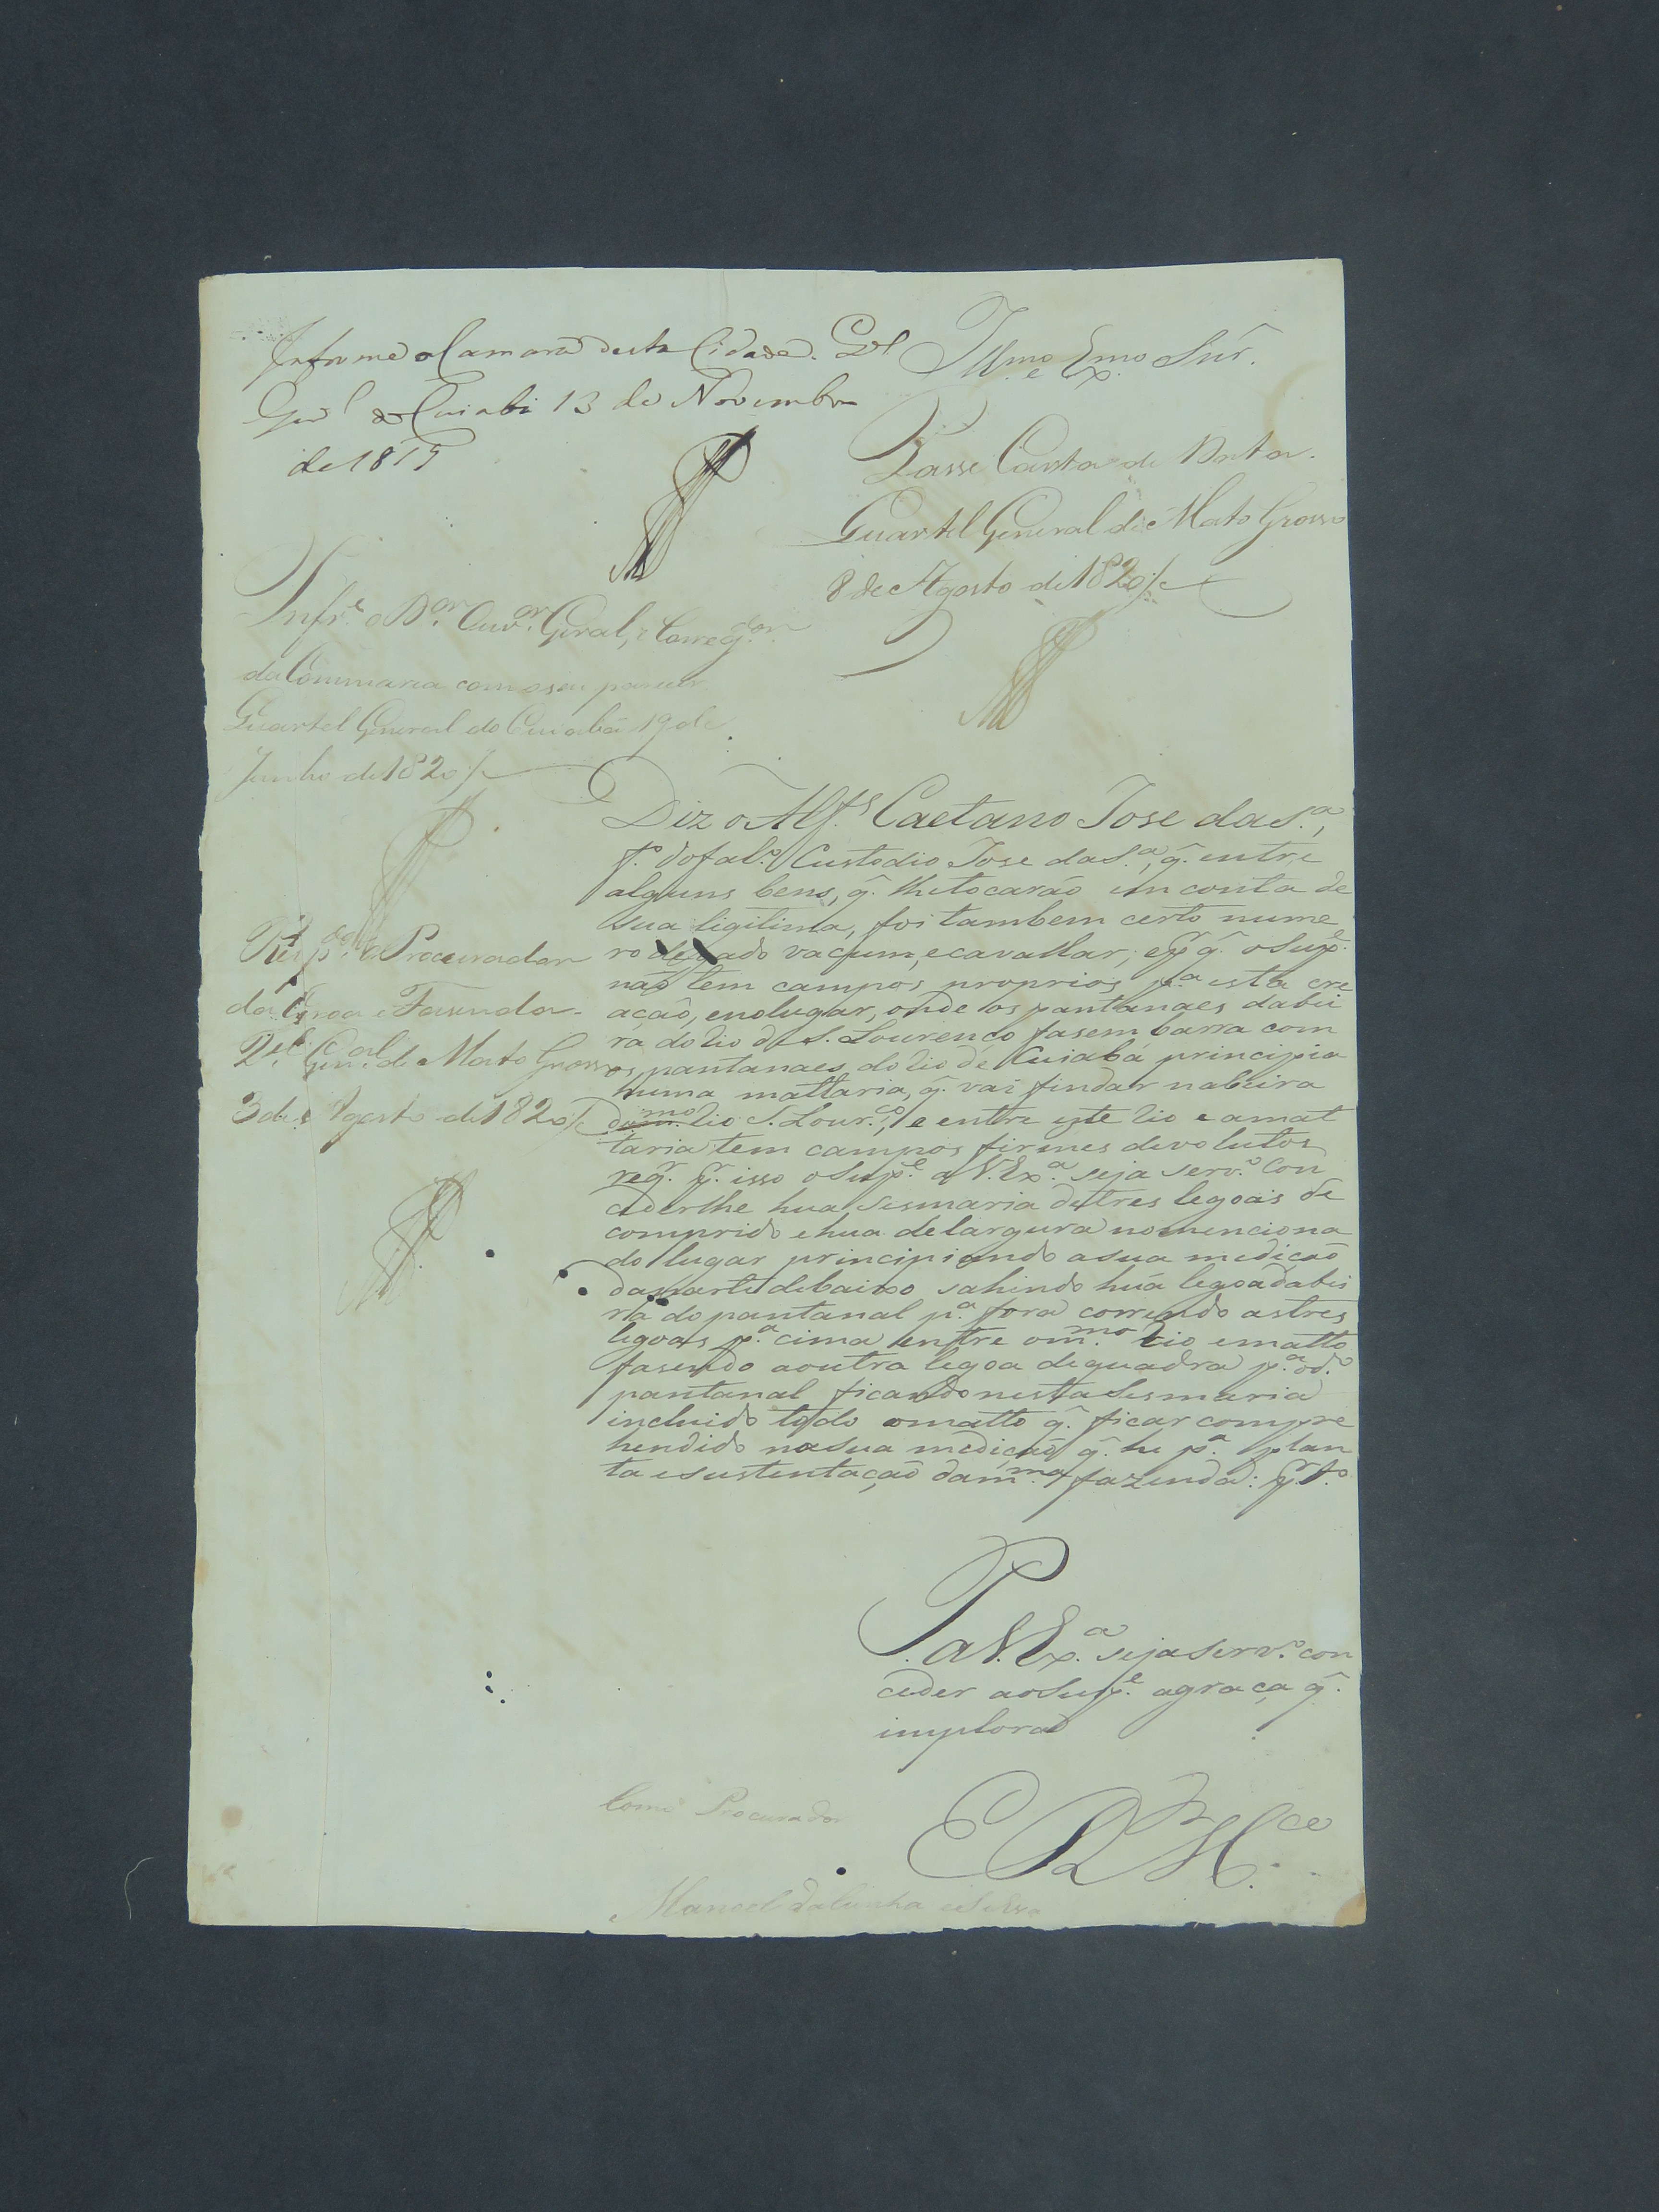 Informe a Camara desta Cidade. Qel
Gen.l do Cuiabá 13 de Novembro
de 1819
Ill.mo e Ex.mo Snr.
Passe Carta de Data.
Quartel General de Mato Grosso
8 de Agosto de 1820
Infr.e o D.or Ouv.or Geral, e Correg.dor
da Commarca com o seu parecer.
Quartel General do Cuiabá 19 de
Junho de 1820
Resp.da o Procurador
da Coroa e Fazenda.
Q.el Gen.al de Mato Grosso
3 de Agosto de 1820
Diz o Alf.s Caetano Jose da S.a,
f.o do fal.o Custodio Jose da S.a, q̃. entre
alguns bens, q̃. lhe tocarão em conta de
sua ligitima, foi tambem certo nume
ro de gado vacum, e cavallar; e p.r q̃. o Sup.e
não tem campos proprios p.a esta cre
ação, e no lugar, onde os pantanaes da bei
ra do Rio de S. Lourenço fasem barra com
os pantanaes do Rio de Cuiabá principia
huma mattaria, q̃. vai findar na beira
do m.mo Rio S. Lour.co, e entre este Rio e a mat
taria tem campos firmes devolutos
req.r p.r isso o Sup.e a V. Ex.a seja serv.o Con
cederlhe hua Sesmaria de tres legoas de
comprido e hua de largura no menciona
do lugar principiando a sua medição
da parte debaixo sahindo huã legoa da bei
ra do pantanal p.a fora correndo as tres
legoas p.a cima entre o m.mo Rio e matto
fasendo a outra legoa de quadra p.a o d.o
pantanal ficando nesta Sesmaria
incluido todo o matto q̃. ficar compre
hendido na sua medição q̃. he p.a plan
ta e sustentação da m.ma fazenda: p.r t.o
P. a V. Ex.a seja serv.o con
ceder ao Sup.e a graça q̃.
implora
E R M.ce
Como Procurador
Manoel da Cunha e Silva